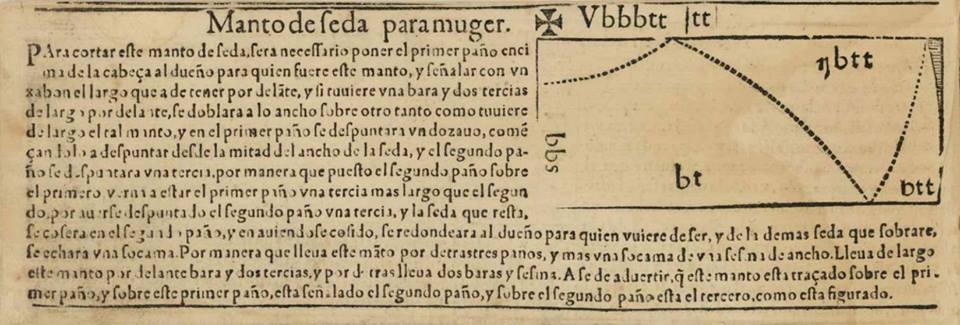 Manto de seda para muger. ✠ Vbbbtt |tt|
PAra cortar este manto de seda, sera necessario poner el primer paño enci
ma de la cabeça al dueño para quien fuere este manto, y señalar con vn
xabon el largo que a de tener por delãte, y si tuuiere vna bara y dos tercias
de largo por delante, se doblara a lo ancho sobre otro tanto como tuuiere
de largo el tal manto, y en el primer paño se despuntara vn dozauo, comẽ
çandolo a despuntar desde la mitad del ancho de la seda, y el segundo pa-
ño se despuntara vna tercia, por manera que puesto el segundo paño sobre
el primero verna a estar el primer paño vna tercia mas largo que el segun
do, por auerse despuntado el segundo paño vna tercia, y la seda que resta,
se cosera en el segundo paño, y en auiendose cosido, se redondeara al dueño para quien vuiere de ser, y de la demas seda que sobrare,
se echara vna socama. Por manera que lleua este mãto por detras tres panos, y mas vna socama de vna sesma de ancho. Lleua de largo
este manto por delante bara y dos tercias, y por detras lleua dos baras y sesma. A se de aduertir, q̃ este manto esta traçado sobre el pri-
mer paño, y sobre este primer paño, esta señalado el segundo paño, y sobre el segundo paño esta el tercero, como esta figurado.
ηbtt
bbs
bt
dtt